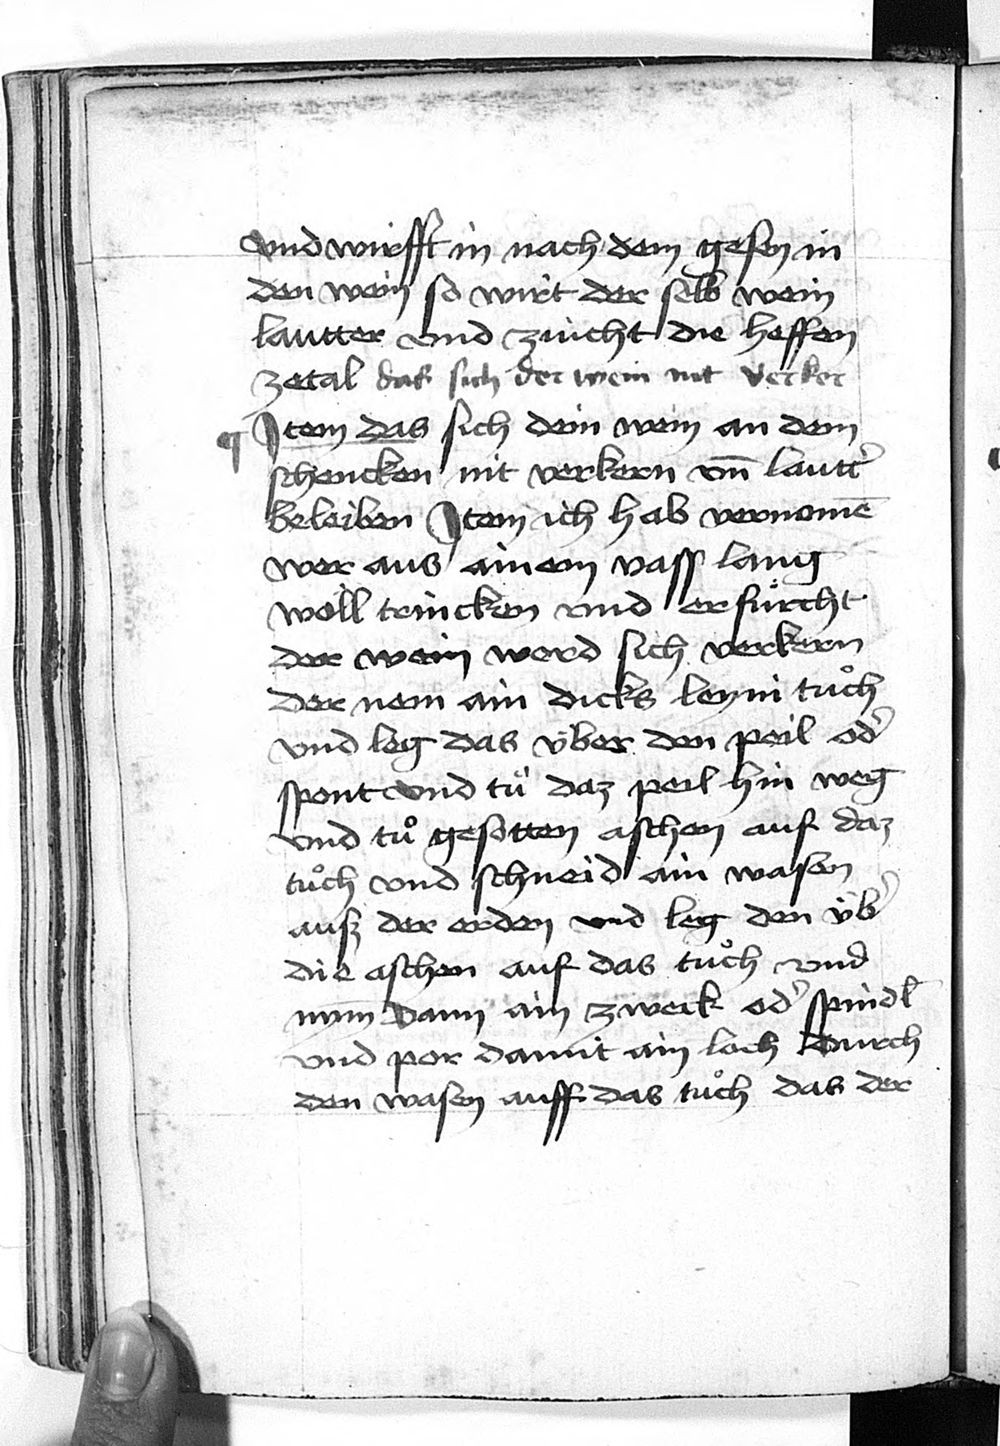 vnd wirfft in nach dem gesen in
den wein so wirt der selb wein
lautter vnd zuicht die heffen
zetal das sich der wein nit verker
¶ Item das sich dein wein an dem
schencken nit verkern vn̄ lautt͛
beleiben Item ich hab vernomē
wer aus ainem vass lang
wöll trincken vnd er fürcht
der wein werd sich verkern
der nem ain dicks leynin tuͦch
vnd leg das v̈ber den peil od͛
spont vnd tuͦ daz peil hin weg
vnd tuͦ gesotten aschen auf daz
tuͦch vnd schneid ain wasen
ausz der erden vnd leg den v̈b͛
die aschen auf das tuͦch vnd
nym̄ dann ain zweck od͛ spindl
vnd por damit ain loch durch
den wasen auff das tuͦch das der